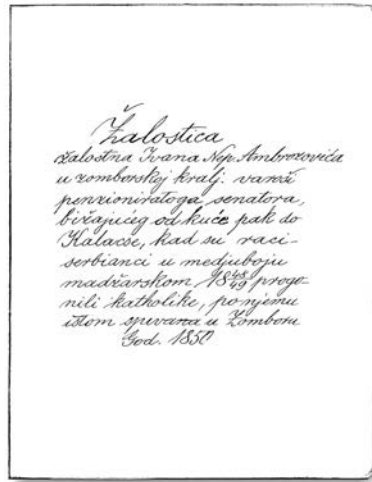 Žalostica
žalostna Ivana Nep. Ambrozovića
u zomborskoj kralj. varoši
penzioniratoga, senatora,
bižajućeg od kuće pak do
Kalacse, kad su raci-
serbianci u medjuboju
madžarskom 1848/49 progo-
nili katholike, po njemu
istom spivana u Zomboru
God. 1850